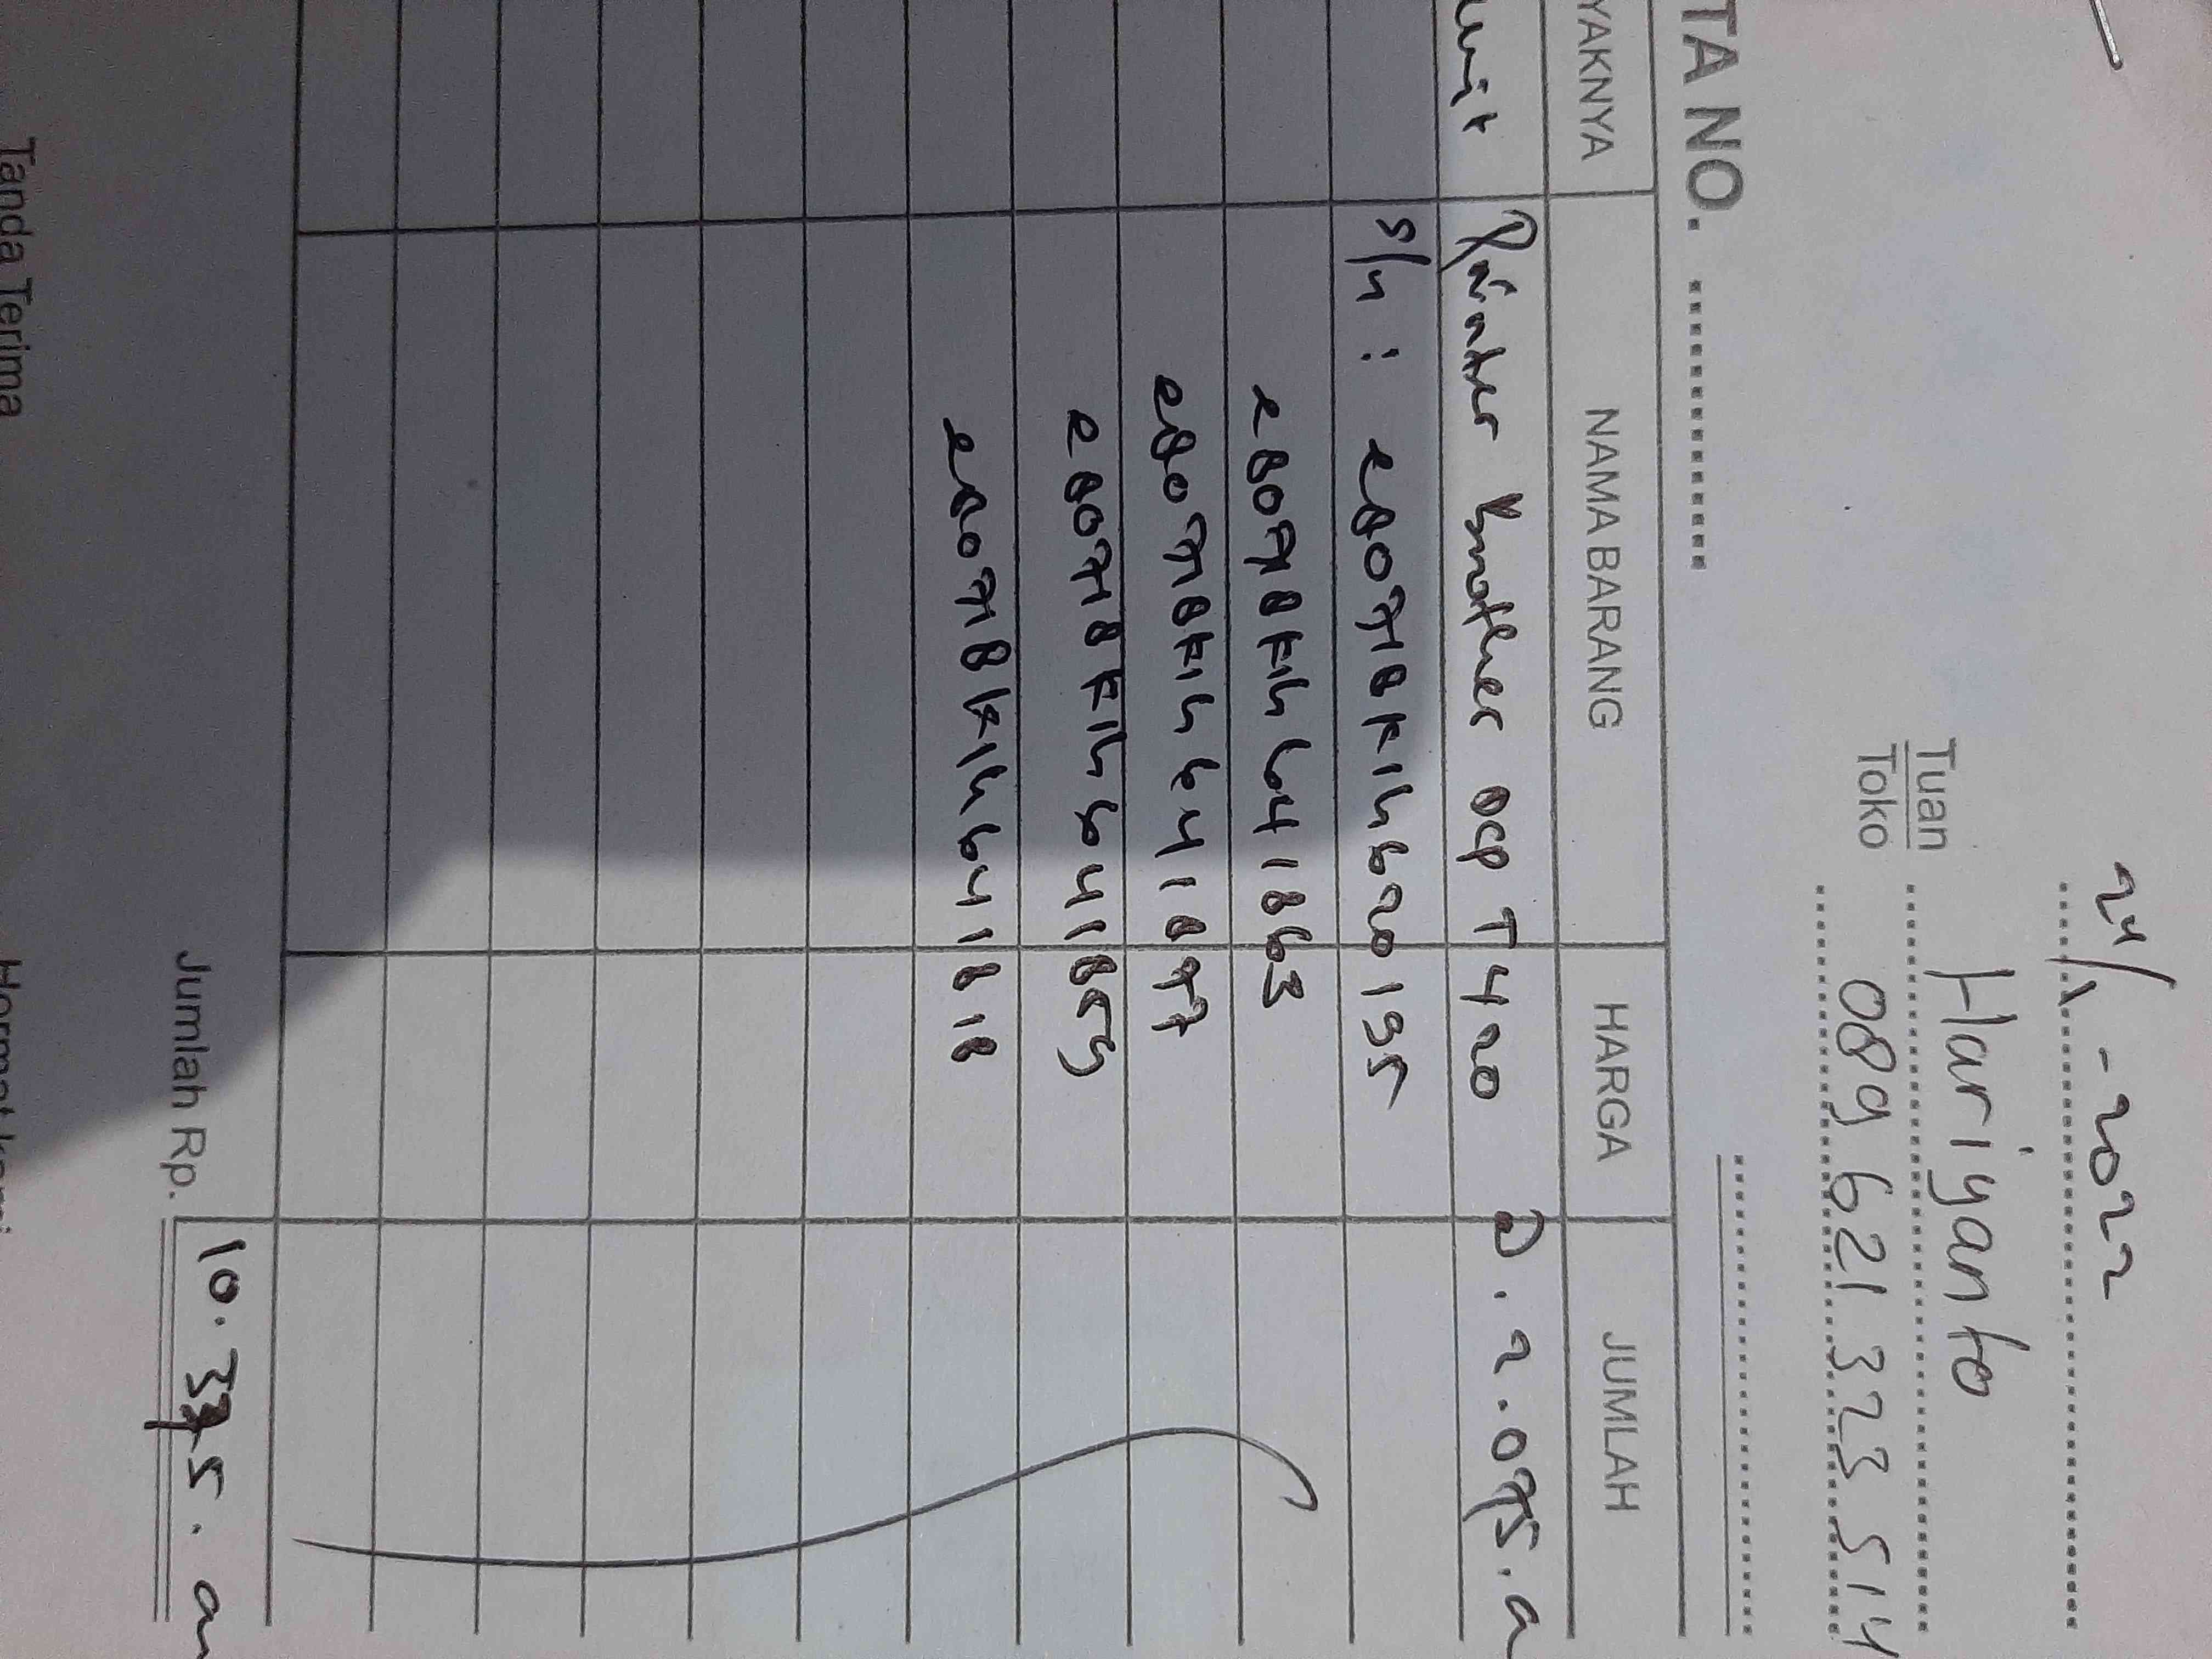 24/1-2022
Tuan Hariyanto
Toko 089 621 323 514
TA NO. ....................
YAKNYA NAMA BARANG HARGA JUMLAH
unit Printer brother DCP T420 @. 2.075.
s/n : e80718k1h620195
e80718k1h641863
e80718k1h641877
e80718k1h641853
e80718k1h641818
Jumlah Rp. 10.375.
Tanda Terima Hormat kami